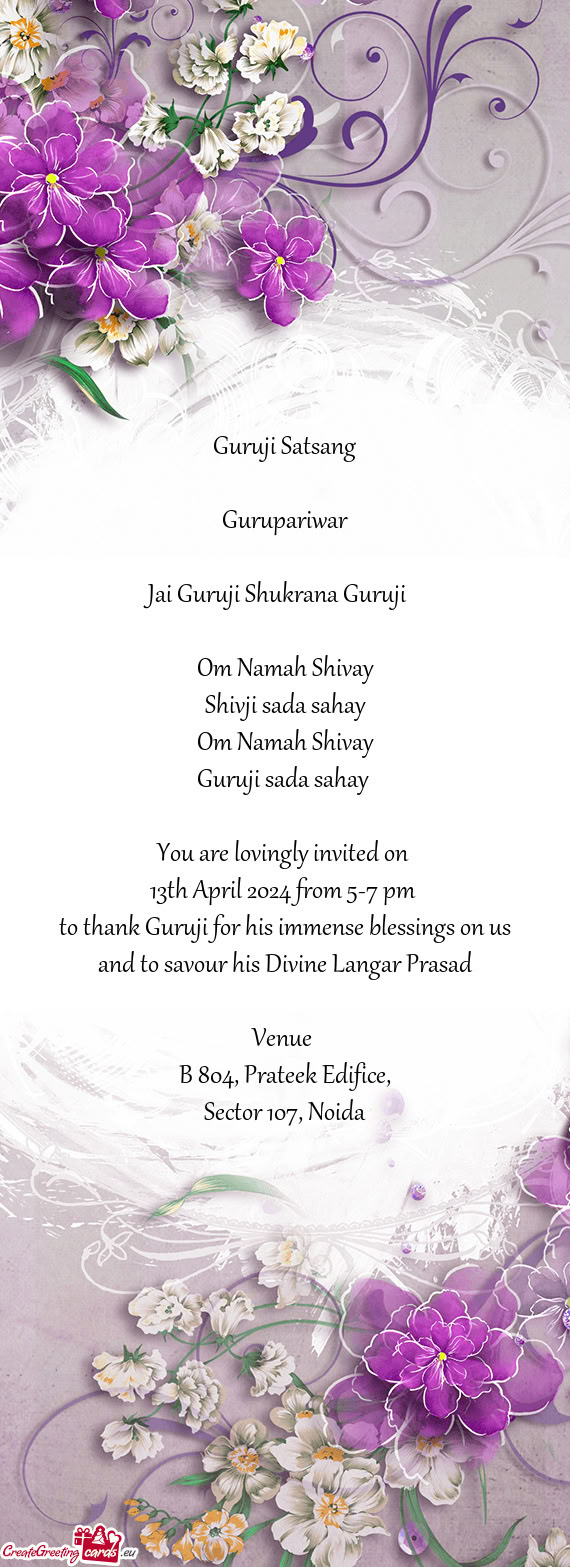 Guruji Satsang
Gurupariwar
Jai Guruji Shukrana Guruji
Om Namah Shivay
Shivji sada sahay
Om Namah Shivay
Guruji sada sahay
You are lovingly invited on
13th April 2024 from 5-7 pm
to thank Guruji for his immense blessings on us
and to savour his Divine Langar Prasad
Venue
B 804, Prateek Edifice,
Sector 107, Noida
CreateGreeting cards .eu